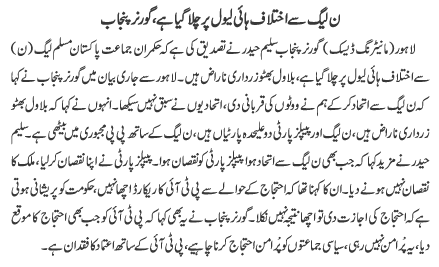 ن لیگ سے اختلاف ہائی لیول پر چلا گیا ہے، گورنر پنجاب
لاہور (مانیٹرنگ ڈیسک) گورنر پنجاب سلیم حیدر نے تصدیق کی ہے کہ حکمران جماعت پاکستان مسلم لیگ (ن)
سے اختلاف ہائی لیول پر چلا گیا ہے، بلاول بھٹو زرداری ناراض ہیں۔ لاہور سے جاری بیان میں گورنر پنجاب نے کہا
کہ ن لیگ سے اتحاد کر کے ہم نے ووٹوں کی قربانی دی، اتحادیوں نے سبق نہیں سیکھا۔ انہوں نے کہا کہ بلاول بھٹو
زرداری ناراض ہیں، ن لیگ اور پیپلز پارٹی دو علیحدہ پارٹیاں ہیں، ن لیگ کے ساتھ پی پی مجبوری میں بیٹھی ہے۔ سلیم
حیدر نے مزید کہا کہ جب بھی ن لیگ سے اتحاد ہوا پیپلز پارٹی کو نقصان ہوا۔ پیپلز پارٹی نے اپنا نقصان کر لیا، ملک کا
نقصان نہیں ہونے دیا۔ ان کا کہنا تھا کہ احتجاج کے حوالے سے پی ٹی آئی کا ریکارڈ اچھا نہیں، حکومت کو پریشانی ہوتی
ہے کہ احتجاج کی اجازت دی تو اچھا نتیجہ نہیں نکلا۔ گورنر پنجاب نے یہ بھی کہا کہ پی ٹی آئی کو جب بھی احتجاج کا موقع
دیا، یہ پُر امن نہیں رہی، سیاسی جماعتوں کو پُر امن احتجاج کرنا چاہیے، پی ٹی آئی کے ساتھ اعتماد کا فقدان ہے۔